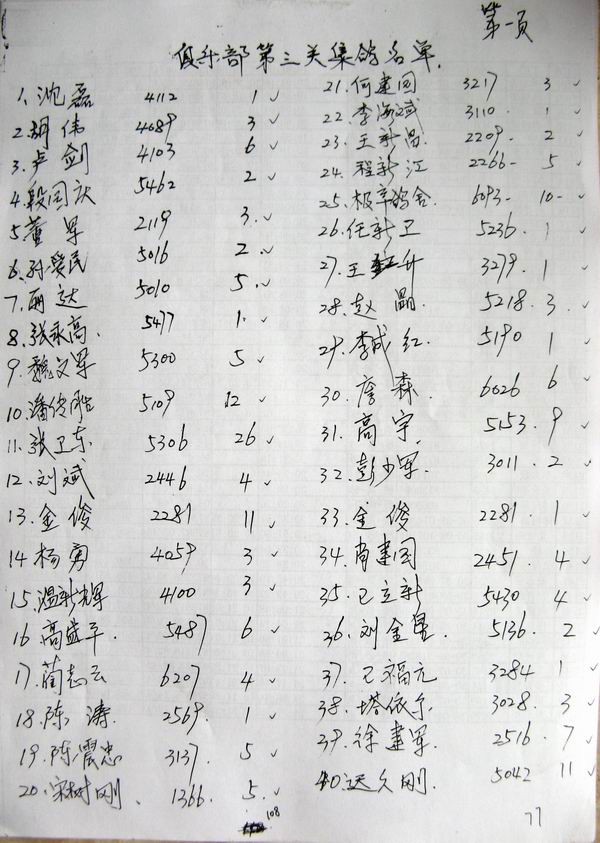 第一页
俱乐部第三关集鸽名单
1、沈磊 4112 1 ✓
2.胡伟 4089 3 ✓
3.卢剑 4103 6 ✓
4.段国庆 5462 2 ✓
5.董军 2119 3. ✓
6.孙爱民 5016 2. ✓
7.丽达 5010 5. ✓
8.张永高. 5477 1. ✓
9.魏文军 5300 5 ✓
10.潘 5109 12 ✓
11.张卫东 5306 26 ✓
12.刘斌 2446 4 ✓
13.金俊 2281 11 ✓
14.杨勇 4059 3 ✓
15.温新辉 4100 3 ✓
16.高盛平. 5487 6 ✓
17.蔺志云 6207 4 ✓
18.陈涛. 2569. 1 ✓
19.陈震忠 3137. 5 ✓
20.宋树刚. 1366. 5. ✓
21.何建国 3217 3 ✓
22.李海斌 3110 1 ✓
23.王新昌 2209. 2 ✓
24.程新江 2266- 5 ✓
25.极幸鸽舍 6093- 10- ✓
26.任新卫 5236. 1 ✓
27.王升 3279. 1 ✓
28.赵晶. 5218. 3. ✓
29.李成红. 5190 1 ✓
30.詹森. 6026 6 ✓
31.高宇. 5153. 9 ✓
32.彭少军. 3011. 2 ✓
33.金俊 2281. 1 ✓
34.肖建国 2451. 4 ✓
35.已立新 5430 4 ✓
36.刘金 5136. 2 ✓
37.已福元 3284 1 ✓
38.塔依尔 3028. 3 ✓
39.徐建军. 2516. 7 ✓
40.久刚. 5042 11 ✓
108
77